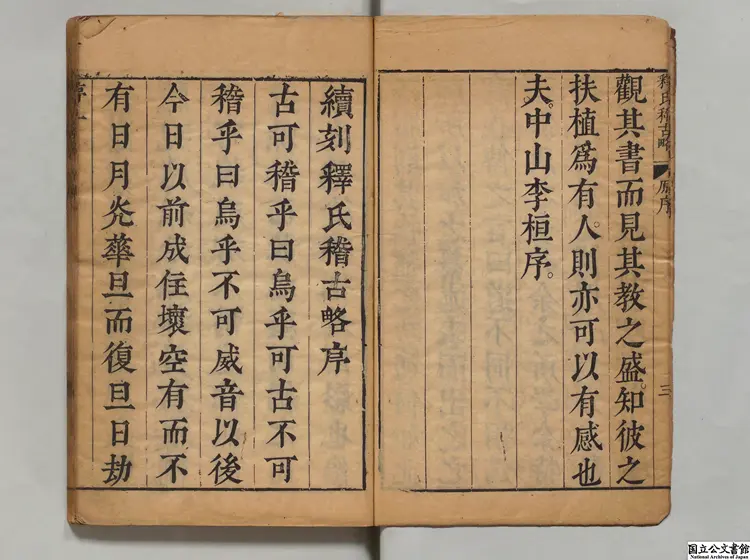 釋氏稽古略 原序 三
觀其書而見其教之盛知彼之
扶植爲有人。則亦可以有感也
夫。中山李桓序。
續刻釋氏稽古略序
古可稽乎曰烏乎可古不可
稽乎曰烏乎不可威音以後
今日以前成住壞空有而不
有日月光華旦而復旦日劫
国立公文書館
National Archives of Japan